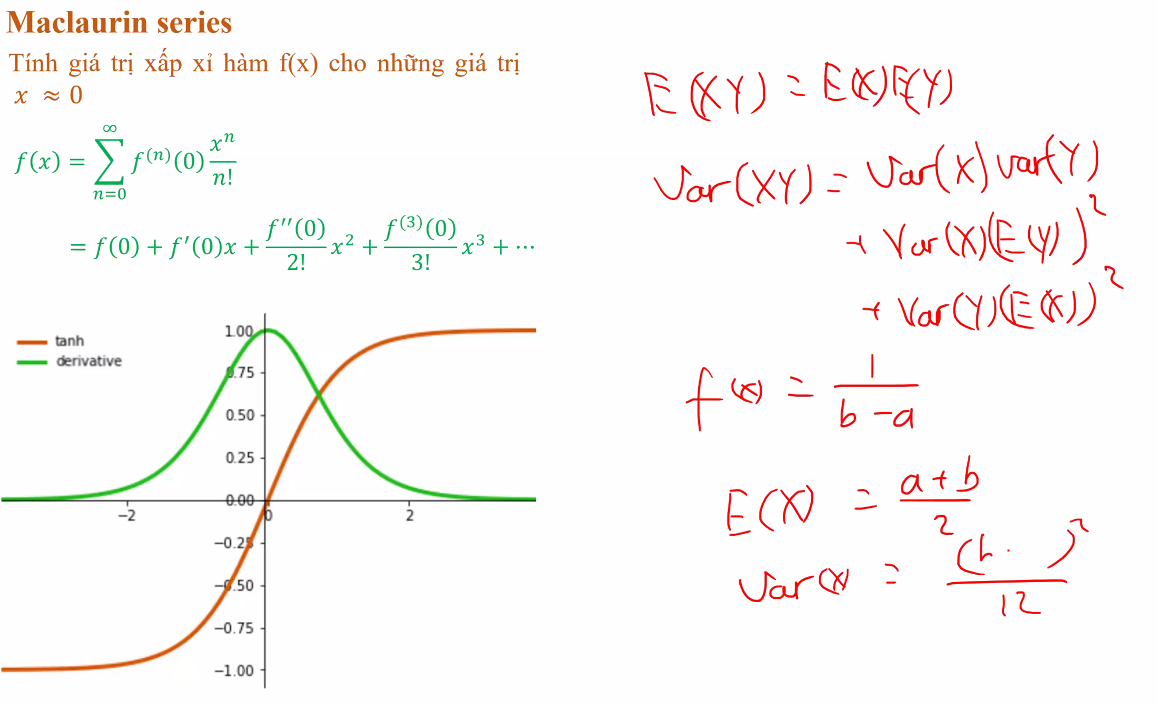 Maclaurin series
Tính giá trị xấp xỉ hàm f(x) cho những giá trị
x ≈ 0
f(x) = ∑_{n=0}^{∞} f^{(n)}(0) x^n/n!
= f(0) + f′(0)x + f′′(0)/2! x² + f^{(3)}(0)/3! x³ + ⋯
tanh
derivative
1.00
0.75
0.50
0.25
0.00
−2
0
2
−0.25
−0.50
−0.75
−1.00
E(XY) = E(X)E(Y)
Var(XY) = Var(X) Var(Y)
+ Var(X)(E(Y))²
+ Var(Y)(E(X))²
f(x) = 1/(b − a)
E(X) = (a + b)/2
Var(X) = ( )²/12